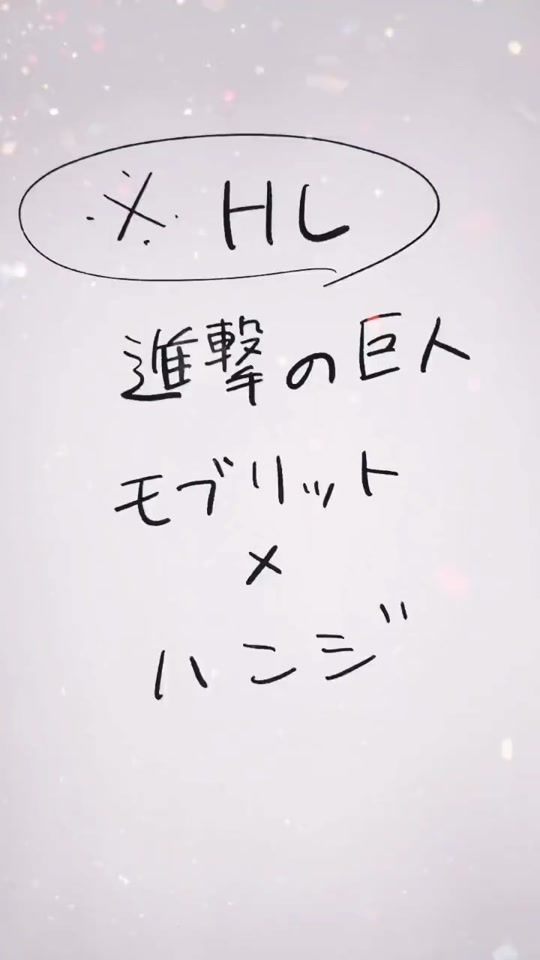 ※ HL
進撃の巨人
モブリット
×
ハンジ